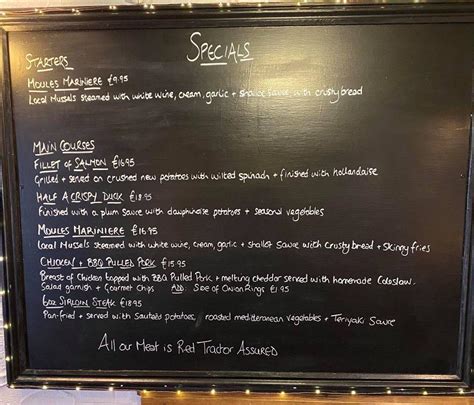 Specials
Starters
Moules Mariniere £9.95
Local Mussels steamed with white wine, cream, garlic + shallot sauce with crusty bread
Main Courses
Fillet of Salmon £16.95
Grilled + served on crushed new potatoes with wilted spinach + finished with hollandaise
Half A Crispy Duck £18.95
Finished with a plum sauce with dauphinoise potatoes + seasonal vegetables
Moules Mariniere £16.95
Local Mussels steamed with white wine, cream, garlic + shallot sauce with crusty bread + skinny fries
Chicken + BBQ Pulled Pork £15.95
Breast of Chicken topped with BBQ Pulled Pork + melting cheddar served with homemade Coleslaw,
Salad garnish + Gourmet Chips Add: Side of Onion Rings £1.95
6oz Sirloin Steak £18.95
Pan-fried + served with Sauteéd Potatoes, roasted mediterranean vegetables + Teriyaki Sauce
All our Meat is Red Tractor Assured